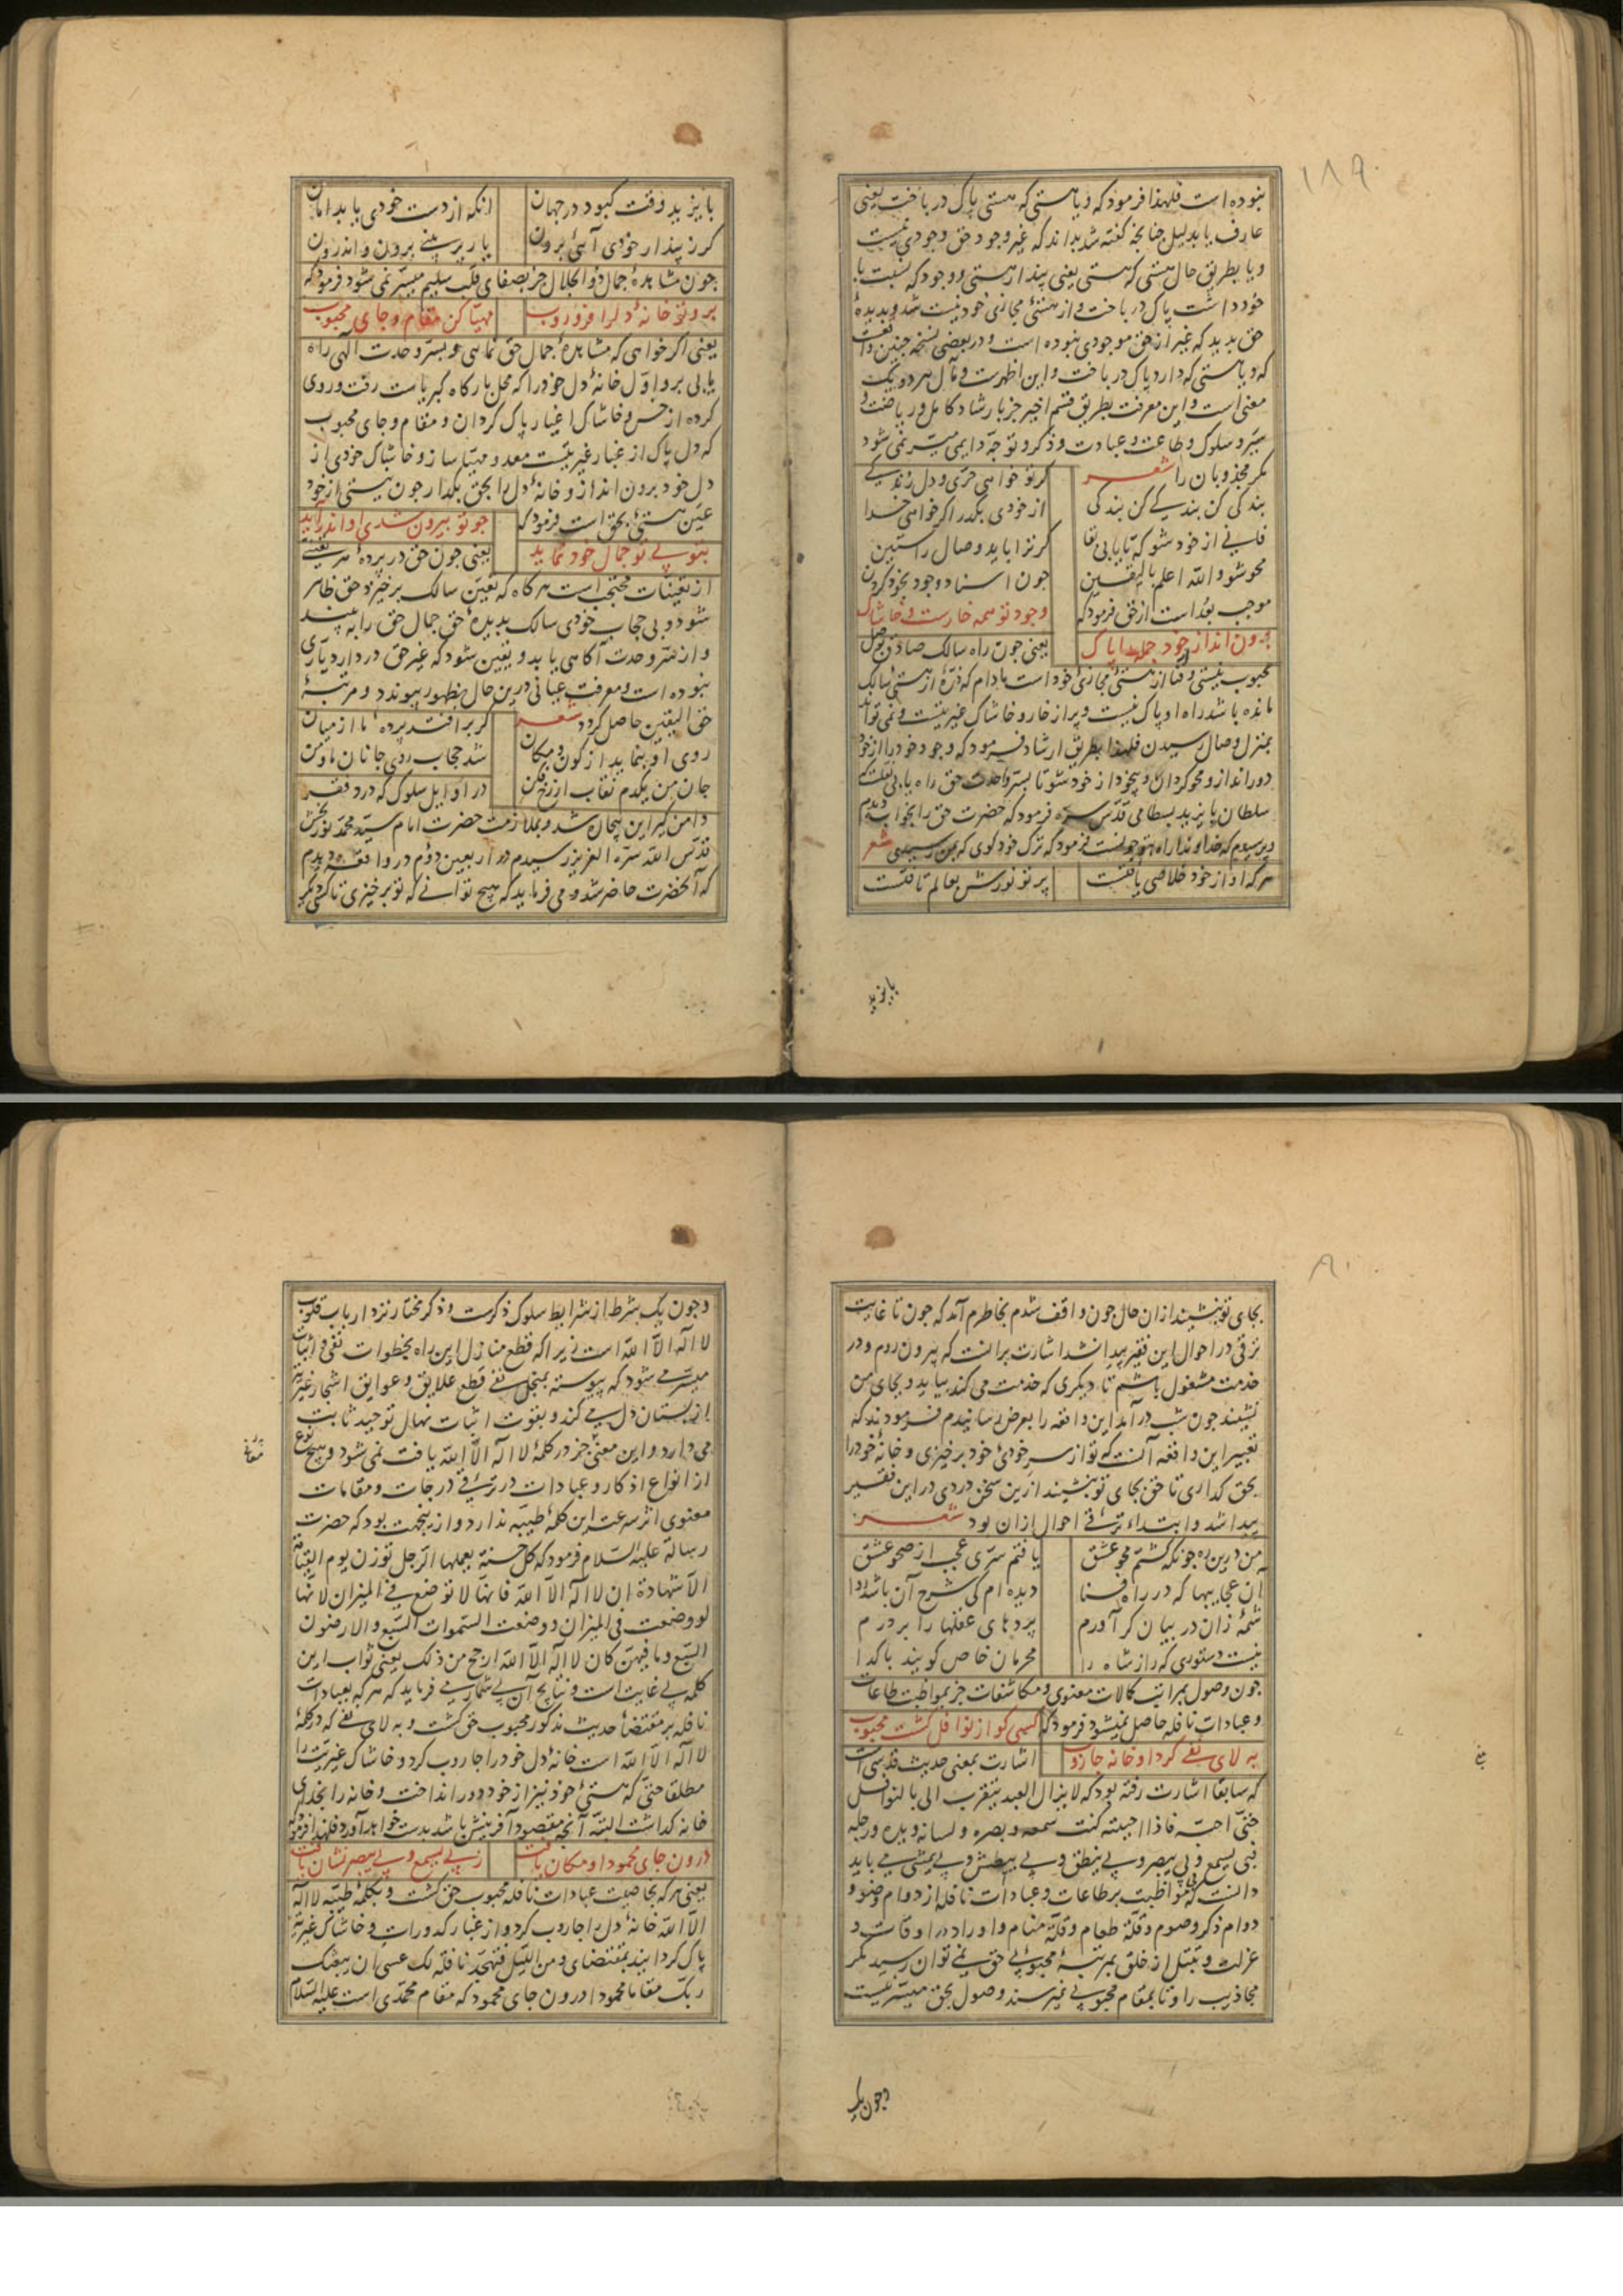 ١٨٩
نبوده است فلهذا فرمود که ویا هستی که هستی پاک درباخت یعنی
عارف یا بدلیل چنانچه گفته شد بداند که غیر وجود حق وجودی نیست
ویا بطریق حال هستی که هستی یعنی پندار هستی و وجود که نسبت با
خود داشت پاک درباخت و از هستئ مجازی خود نیست شد و بدیدهٔ
حق بدید که غیر از حق موجودی نبوده است و در بعضی نسخه چنین واقعست
که ویا هستی که دارد پاک درباخت و این اظهرست و مآل هر دو یک
معنی است و این معرفت بطریق قسم اخیر جز بارشاد کامل و ریاضت و
سیر و سلوک و طاعت و عبادت و ذکر و توجه دایمی میسر نمی شود
مگر مجذوبان را شعر گر تو خواهی حری و دل زندگی
بندگی کن بندگی کن بندگی از خودی بگذر اگر خواهی خدا
فانی از خود شو که تا یابی بقا گر ترا باید وصال راستین
محو شو والله اعلم بالیقین چون اسناد وجود بخود کردن
موجب بُعد است از حق فرمود که وجود تو همه خارست و خاشاک
برون انداز از خود جمله را پاک یعنی چون راه سالک صادق بوصل
محبوب نیستی و فنا از هستئ مجازئ خود است مادام که ذرهٔ از هستئ سالک
مانده باشد راه او پاک نیست و پر از خار و خاشاک غیریتست و نمی تواند
بمنزل وصال رسیدن فلهذا بطریق ارشاد فرمود که وجود خود را از خود
دور انداز و محو گردان و بیخود از خود شو تا بسر وحدت حق راه یابی نقلست که
سلطان بایزید بسطامی قدس سره فرمود که حضرت حق را بخواب دیدم
پرسیدم که خداوندا راه بتو چونست فرمود که ترک خود گوی که بمن رسیدی شعر
هر که او از خود خلاصی یافتست پرتو نورش بعالم تافتست
بایزید
بایزید وقت گبود در جهان انکه از دست خودی یابد امان
گر ز پندار خودی آئی برون یار بر بینی برون و اندرون
چون مشاهدهٔ جمال ذو الجلال جز بصفای قلب سلیم میسر نمی شود فرمود که
برو تو خانهٔ دل را فرو روب مهیا کن مقام و جای محبوب
یعنی اگر خواهی که مشاهدهٔ جمال حق نمائی و بسر وحدت الهی راه
یابی برو اول خانهٔ دل خود را که محل بارگاه کبریاست رفت و روی
کرده از خس و خاشاک اغیار پاک گردان و مقام و جای محبوب
که دل پاک از غبار غیریتست معد و مهیا ساز و خاشاک خودی از
دل خود برون انداز و خانهٔ دل را بحق بگذار چون نیستی از خود
عین هستئ بحق است فرمود که چو تو بیرون شدی او اندر آید
بتو بی تو جمال خود نماید یعنی چون حق در پردهٔ هر تعینی
از تعینات محتجب است هر گاه که تعین سالک بر خیزد حق ظاهر
شود و بی حجاب خودی سالک بدیدهٔ حق جمال حق را به بیند
و از سر وحدت آگاهی یابد و یقین شود که غیر حق در دار دیاری
نبوده است و معرفت عیانی درین حال بظهور پیوندد و مرتبهٔ
حق الیقین حاصل گردد شعر گر بر افتد پردهٔ ما از میان
روی او بنماید از کون و مکان شد حجاب روی جانان ما و من
جان من یکدم نقاب از رخ فکن در اوایل سلوک که درد فقر
دامن گیر این بیجان شد و بملازمت حضرت امام سید محمد نوربخش
قدس الله سره العزیز رسیدم در اربعین دوم در واقعه دیدم
که آنحضرت حاضر شد و می فرماید که هیچ توانی که تو برخیزی تا کسی دیگر
١٩٠
بجای تو بنشیند ازان حال چون واقف شدم بخاطرم آمد که چون تا غایت
ترقی در احوال این فقیر پیدا نشد اشارت برانست که بیرون روم و در
خدمت مشغول باشم تا دیگری که خدمت می کند بیاید و بجای من
نشیند چون شب در آمد این واقعه را بعرض رسانیدم فرمودند که
تعبیر این واقعه آنست که تو از سر خودئ خود برخیزی و خانهٔ خود را
بحق گذاری تا حق بجای تو بنشیند ازین سخن دردی در این فقیر
پیدا شد و ابتداء ترقی احوال ازان بود شعر
من درین ره چونکه گشتم محو عشق یافتم سری عجب از صحو عشق
آن عجایبها که در راه فنا دیده ام کی شرح آن باشد روا
شمهٔ زان در بیان گر آورم پردهای عقلها را بر درم
نیست دستوری که راز شاه را محرمان خاص گویند با گدا
چون وصول بمراتب کمالات معنوی و مکاشفات جز بمواظبت طاعات
و عبادات نافله حاصل نمیشود فرمود که کسی کو از نوافل گشت محبوب
به لای نفی کرد او خانه جاروب اشارت بمعنی حدیث قدسی است
که سابقا اشارت رفته بود که لا یزال العبد یتقرب الی بالنوافل
حتی احبه فاذا احببته کنت سمعه و بصره و لسانه و یده و رجله
فبی یسمع و بی یبصر و بی ینطق و بی یبطش و بی یمشی می باید
دانست که مواظبت بر طاعات و عبادات نافله از دوام وضو و
دوام ذکر و صوم و قلة طعام و قلة منام و اوراد در اوقات و
عزلت و تبتل از خلق بمرتبهٔ محبوبی حق نمی توان رسید مگر
مجاذیب را و تا بمقام محبوبی نمیرسند وصول بحق میسر نیست
وچون یک
و چون یک شرط از شرایط سلوک ذکرست و ذکر مختار نزد ارباب قلوب
لا اله الا الله است زیرا که قطع منازل این راه بخطوات نفی و اثبات
میسر می شود که پیوسته بمنجل نفی قطع علایق و عوایق اشجار غیریت
از بستان دل می کند و بقوت اثبات نهال توحید ثابت
می دارد و این معنی جز در کلمهٔ لا اله الا الله یافت نمی شود و هیچ نوع
از انواع اذکار و عبادات در ترقی درجات و مقامات
معنوی اثر سرعت این کلمهٔ طیبه ندارد و ازینجهت بود که حضرت
رسالة علیه السلام فرمود که کل حسنة یعملها الرجل توزن یوم القیمة
الا شهادة ان لا اله الا الله فانها لا توضع فی المیزان لانها
لو وضعت فی المیزان و وضعت السموات السبع و الارضون
السبع و ما فیهن کان لا اله الا الله ارجح من ذلک یعنی ثواب این
کلمه بی غایت است و نتایج آن بی شمار می فرماید که هر که بعبادات
نافله بر مقتضاء حدیث مذکور محبوب حق گشت و به لای نفی که در کلمهٔ
لا اله الا الله است خانهٔ دل خود را جاروب کرد و خاشاک غیریت را
مطلقا حتی که هستئ خود نیز از خود دور انداخت و خانه را بخدای
خانه گذاشت البته آنچه مقصود آفرینش باشد بدست خواهد آورد فلهذا فرمود که
درون جای محمود او مکان یافت ز بی یسمع و بی یبصر نشان یافت
یعنی هر که بخاصیت عبادات نافله محبوب حق گشت و بکلمهٔ طیبه لا اله
الا الله خانهٔ دل را جاروب کرد و از غبار کدورات و خاشاک غیریت
پاک گردانید بمقتضای و من اللیل فتهجد به نافلة لک عسی ان یبعثک
ربک مقاما محمودا درون جای محمود که مقام محمدی است علیه السلام